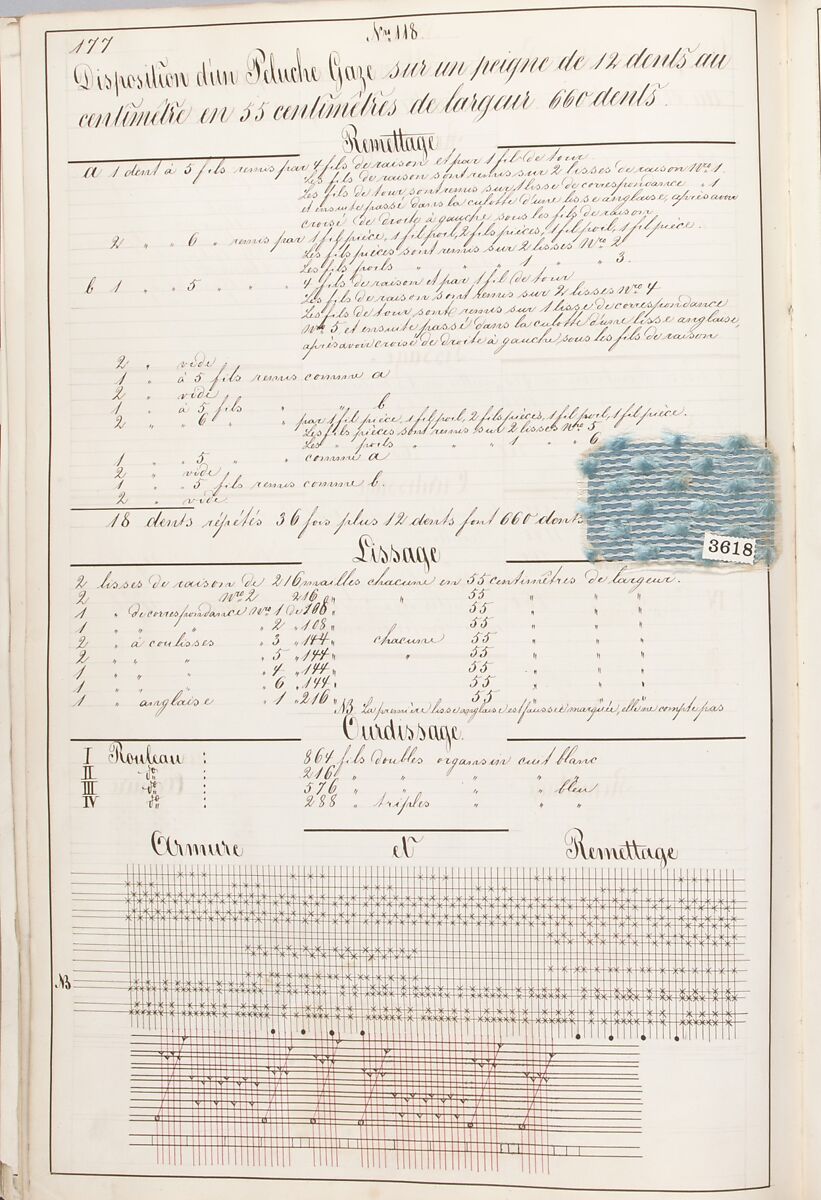 177
Nro 118.
Disposition d'un Peluche Gaze sur un peigne de 12 dents au
centimêtre en 55 centimêtres de largeur 660 dents.
Remettage
a 1 dent à 5 fils remis par 4 fils de raison et par 1 fil de tour
Les fils de raison sont remis sur 2 lisses de raison Nro 1.
Les fils de tour sont remis sur 1 lisse de correspondance " 1
et ensuite passé dans la culotte d'une lisse anglaise, après avoir
croisé de droite à gauche sous les fils de raison.
2 " " 6 " remis par 1 fil pièce, 1 fil poil, 2 fils pièces, 1 fil poil, 1 fil pièce.
Les fils pièces sont remis sur 2 lisses Nro 2
Les fils poils " " " 1 " " 3.
b 1 " " 5 " " " 4 fils de raison et par 1 fil de tour
Les fils de raison sont remis sur 2 lisses Nro 4
Les fils de tour sont remis sur 1 lisse de correspondance
Nro 5 et ensuite passé dans la culotte d'une lisse anglaise,
après avoir croisé de droite à gauche, sous les fils de raison
2 " vide
1 " à 5 fils remis comme a
2 " vide
1 " à 5 fils " " b
2 " " 6 " " par 1 fil pièce, 1 fil poil, 2 fils pièces, 1 fil poil, 1 fil pièce.
Les fils pièces sont remis sur 2 lisses Nro 5
Les " poils " " " 1 " " 6
1 " " 5 " " comme a
2 " vide
1 " " 5 fils remis comme b.
2 " vide
18 dents répétés 36 fois plus 12 dents font 660 dents
3618
Lissage
2 lisses de raison de 216 mailles chacune en 55 centimêtres de largeur.
2 " " Nro 2 216 " " 55 " " "
1 " de correspondance Nro 1 de 108 " 55 " " "
1 " " " 2 " 108 " 55 " " "
2 " à coulisses " 3 " 144 " chacune 55 " " "
2 " " " 5 " 144 " " 55 " " "
1 " " " 4 " 144 " 55 " " "
1 " " " 6 " 144 " 55 " " "
1 " anglaise " 1 " 216 " 55 " " "
NB La première lisse anglaise est puissée marquée, elle ne compte pas
Ourdissage.
I Rouleau : 864 fils doubles organsin cuit blanc
II do : 216 " " " " "
III do : 576 " " " " bleu
IV do : 288 " triples " " "
Armure et Remettage
NB